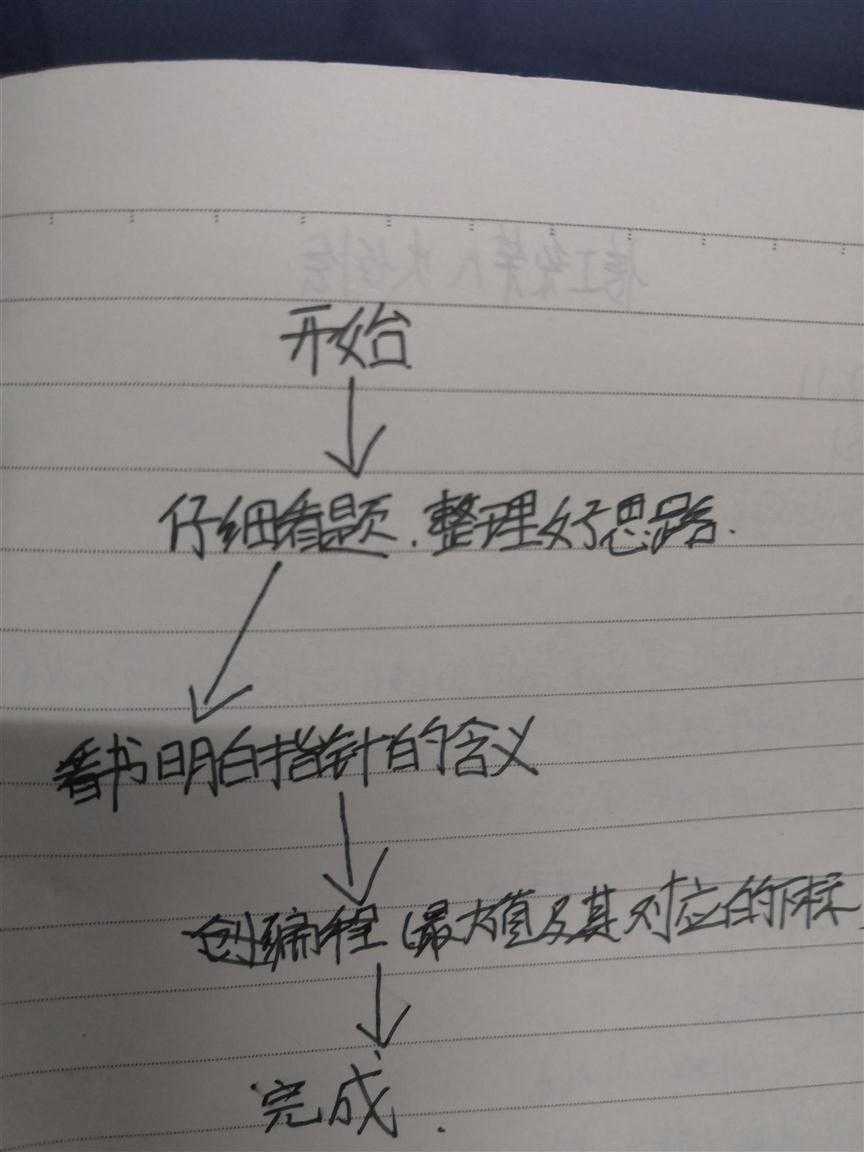 开始
仔细看题.整理好思路.
看书明白指针的含义
创编程(最大值及其对应的下标
完成.